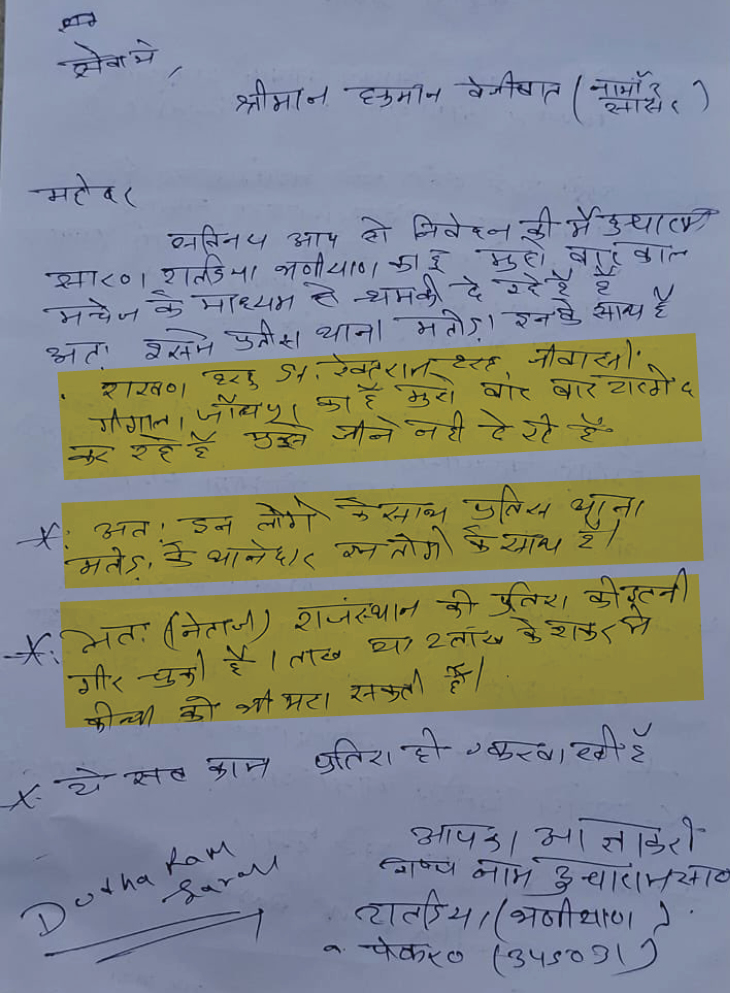 सेवामे,
श्रीमान हनुमान बेनीवाल (नागौर सासंद)
महोदय
सविनय आप से निवेदन की में दुधाराम
सारण रातडिया भणीयाणा का हु मुझे बार बार
मेसेज के माध्यम से धमकी दे रहे है
अतः इसमे पुलीस थाना मतोड़ा इनके साथ है
श्रवण S/o. खेतराम निवासी
जोधपुर का है मुझे बार बार टारगेट
कर रहे है मुझे जीने नही दे रहे है
*: अतः इन लोगो के साथ पुलिस थाना
मतोड़ा के थानेदार इन लोगो के साथ है।
*: अतः (नेताजी) राजस्थान की पुलिस की इतनी
गीर चुकी है। लाख या 2 लाख के चक्कर मे
कीसी को भी मरा सकती है।
*: ये सब काम पुलिस ही करवा रही है
आपका आज्ञाकारी
शिष्य नाम दुधाराम सारण
रातडिया (भणीयाणा)
पोकरण (345031)
Dudha Ram
Saran